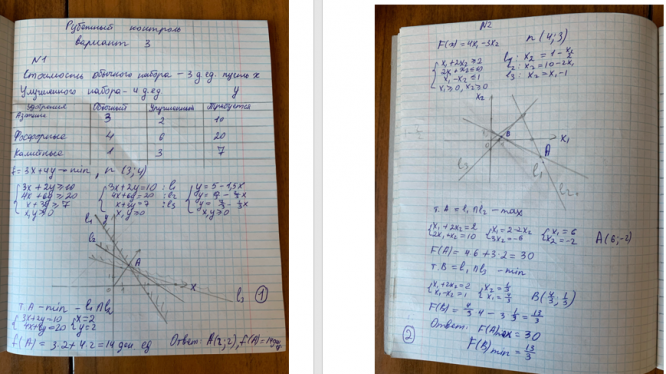 Рубежный контроль
вариант 3
N1
Стоимость обычного набора - 3 д.ед. пусть x
Улучшенного набора - 4 д.ед. y
Удобрения Обычный Улучшенный Требуется
Азотные 3 2 10
Фосфорные 4 6 20
Калийные 1 3 7
f = 3x+4y → min, n(3;4)
3x+2y≥10
4x+6y≥20
x+3y≥7
x,y≥0
3x+2y=10 : l₁
4x+6y=20 : l₂
x+3y=7 : l₃
x,y≥0
y=5-1,5x
x,y≥0
l₁
l₂
y
A
x
l₃
1
т. A - min - l₁∩l₂
3x+2y=10
4x+6y=20
x=2
y=2
f(A) = 3·2+4·2=14 ден. ед
Ответ: A(2;2), f(A)=14
N2
F(x) = 4x₁-3x₂
n(4;3)
x₁+2x₂≥2
2x₁+x₂≤10
x₁-x₂≤1
x₁≥0, x₂≥0
l₂: x₂=10-2x₁
l₃: x₂=x₁-1
x₂
B
x₁
A
l₃
l₁
l₂
т. A = l₁∩l₂ - max
x₁+2x₂=2
2x₁+x₂=10
x₁=2-2x₂
3x₂=-6
x₁=6
x₂=-2
A(6;-2)
F(A) = 4·6+3·2=30
т. B = l₁∩l₃ - min
x₁+2x₂=2
x₁-x₂=1
x₂=1/3
x₁=4/3
B(4/3;1/3)
F(B) = 4/3·4-3·1/3=13/3
2
Ответ: F(A)max=30
F(B)min=13/3